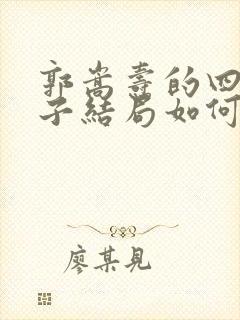 郭嵩焘的四
子结局如何
廖某見